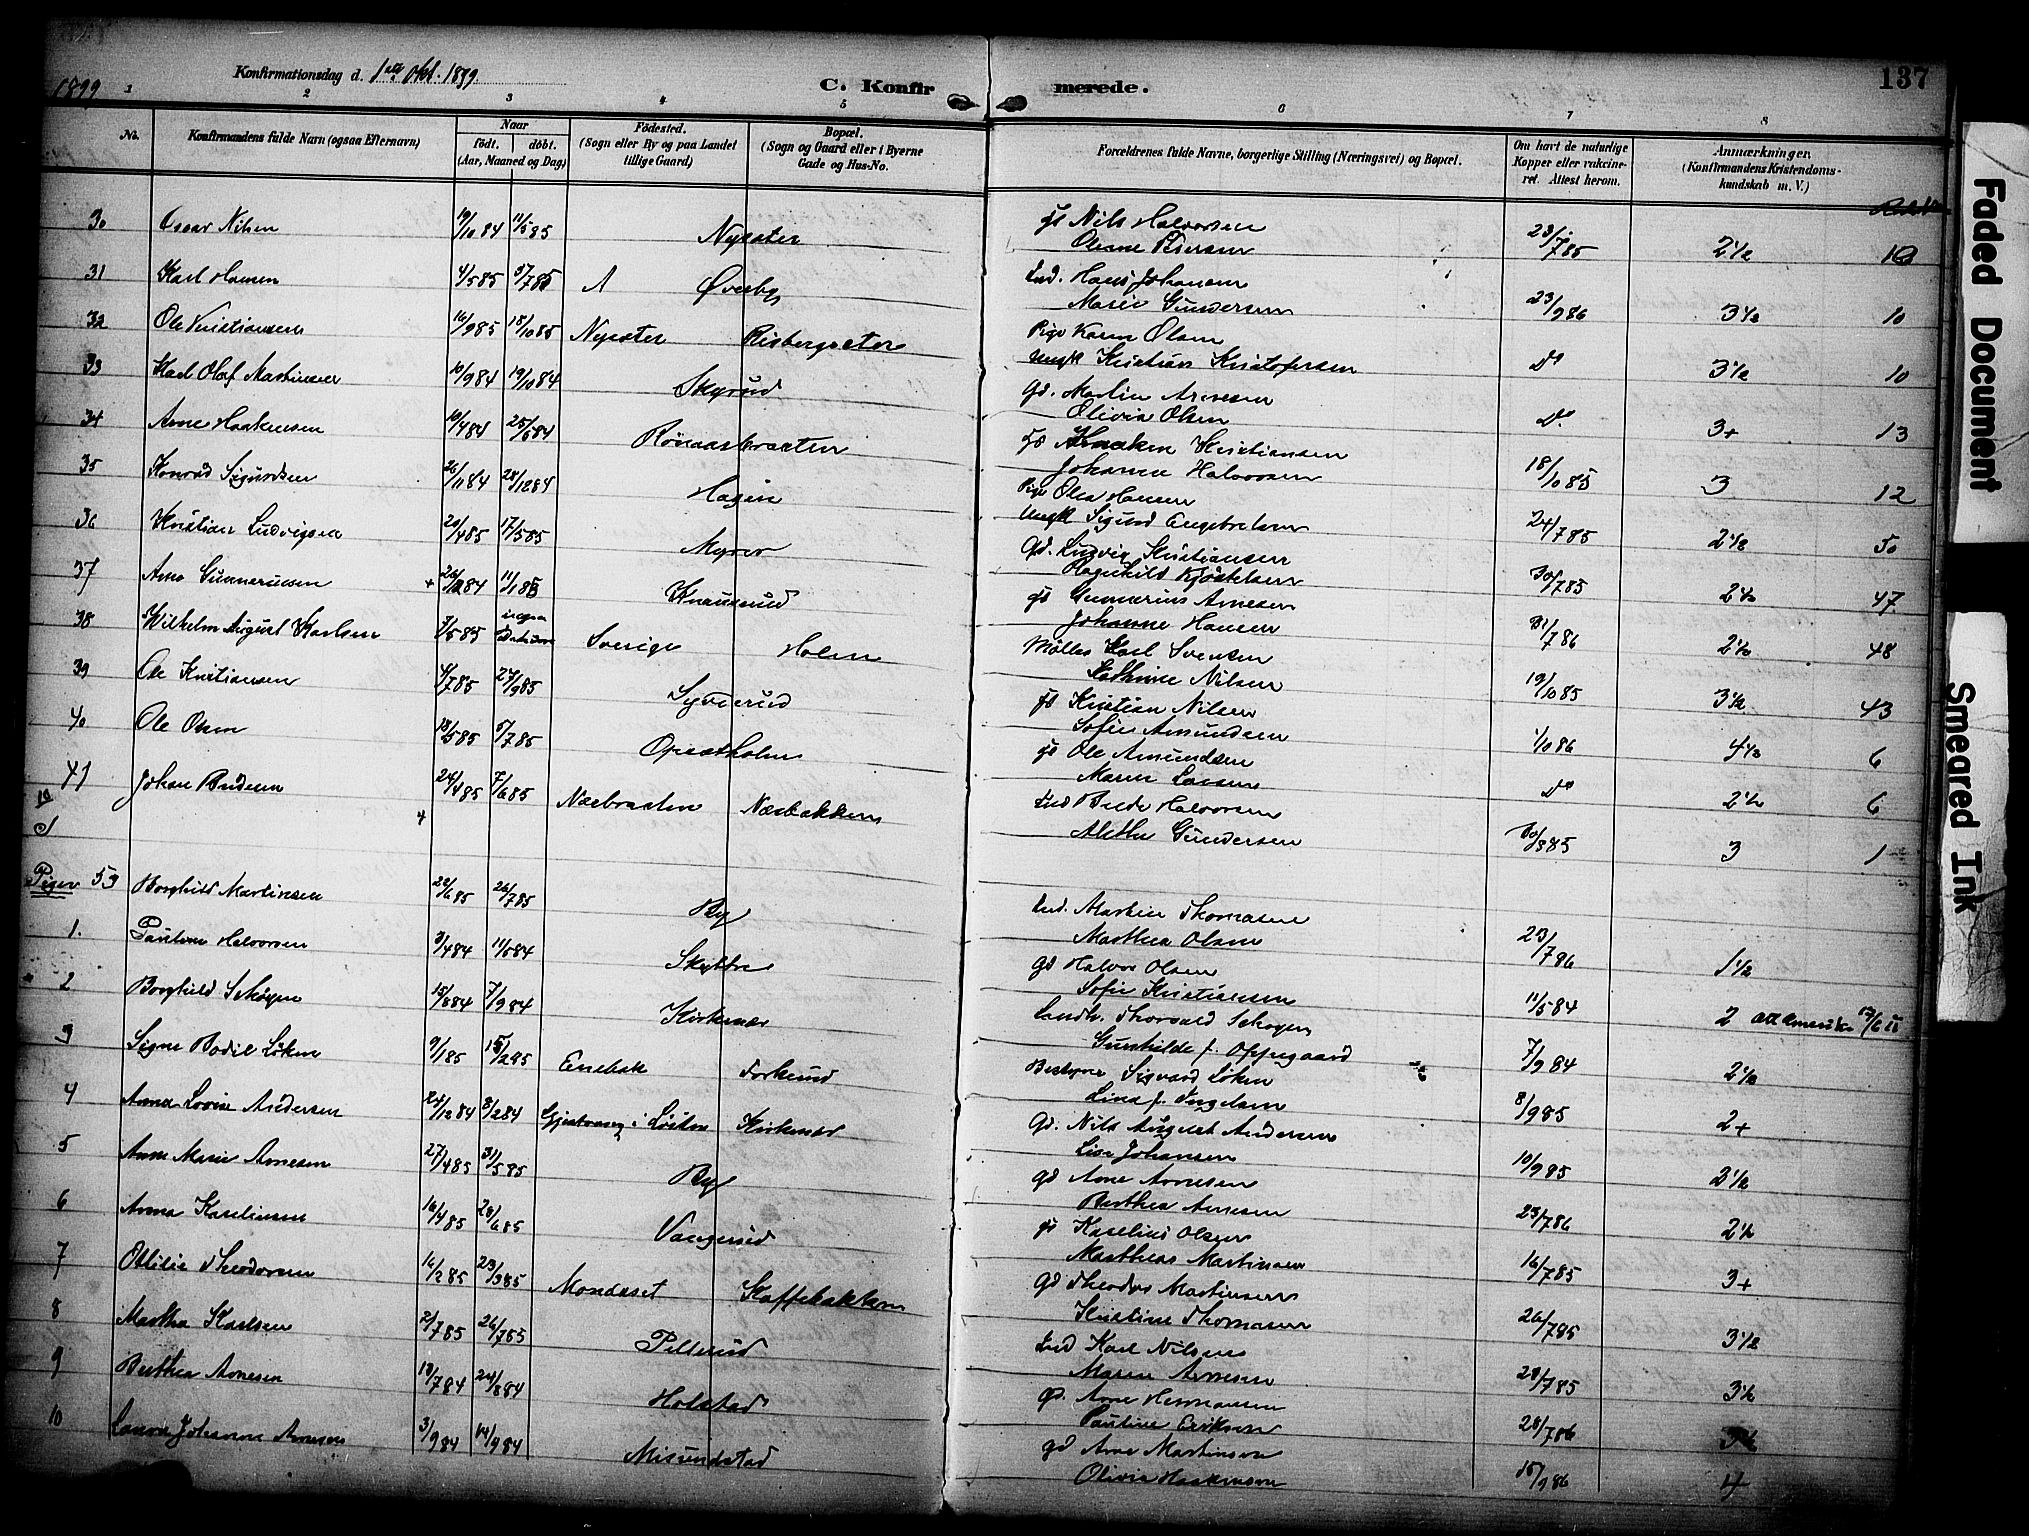 1899
Konfirmationsdag d. 1ste Okt. 1899.
C. Konfirmerede.
137
1 2 3 4 5 6 7 8
No.
Konfirmandens fulde Navn (ogsaa Efternavn)
Naar
født. døbt.
(Aar, Maaned og Dag)
Fødested.
(Sogn eller By og paa Landet
tillige Gaard)
Bopæl.
(Sogn og Gaard eller i Byerne
Gade og Hus-No.
Forældrenes fulde Navne, borgerlige Stilling (Næringsvei) og Bopæl.
Om havt de naturlige
Kopper eller vakcine-
ret. Attest herom.
Anmærkninger
(Konfirmandens Kristendoms-
kundskab m. V.)
30 Oscar Nilsen 19/10 84 11/5 85 Nysæter gs Nils Halvorsen
Oline Pedersen 23/7 85 2 1/2 10
31 Karl Hansen 4/5 85 5/7 85 Øverby Ind. Hans Johansen
Marie Gundersen 23/9 86 3 1/2 10
32 Ole Kristiansen 16/9 85 18/10 85 Nysæter Risbergsæter Pige Karen Olsen
Ungk Kristian Kristofersen do 3 1/2 10
33 Karl Olaf Martinsen 10/9 84 19/10 84 Skyrud Gd. Martin Arnesen
Olivia Olsen do 3+ 13
34 Arne Haakensen 19/4 84 25/5 84 Rönaasbraaten gs Haaken Kristiansen
Johanne Halvorsen 18/10 85 3 12
35 Konrad Sigurdsen 26/11 84 28/12 84 Hagen Pige Olea Hansen
Ungk Sigurd Engebretsen 24/7 85 2 1/2 50
36 Kristian Ludvigsen 20/4 85 17/5 85 Myrer Gd. Ludvig Kristiansen
Ragnhild Kjöstelsen 30/7 85 2 1/2 47
37 Arne Gunneriussen 11/1 85 Knausrud gs Gunnerius Arnesen
Johanne Hansen 31/7 86 2 1/2 48
38 Wilhelm August Karlsen 7/5 85 ingen Datum Sverige Holen Møller Karl Svensen
Kathrine Nilsen 19/10 85 3 1/2 43
39 Ole Kristiansen 4/7 85 27/9 85 Syverud gs Kristian Nilsen
Sofie Amundsen 1/10 86 4 1/2 6
40 Ole Olsen 5/7 85 Opsætholm gs Ole Amundsen
Maren Larsen do 2 1/2 6
41 Johan Bredesen 24/4 85 7/6 85 Næbraaten Næsbakken Ind Brede Halvorsen
Alethe Gundersen 3 1
Piger 53 Borghild Martinsen 22/6 85 26/7 85 By Ind. Martin Thomasen
Marthea Olsen 23/7 86 1 1/2
1. Pauline Halvorsen 3/4 84 11/5 84 Skytte gd Halvor Olsen
Sofie Kristiansen 11/5 84 2 att Amerika
2 Borghild Schøyen 15/8 84 7/9 84 Kirkenær Landh. Thorvald Schøyen
Gunhilde f. Oppegaard 7/9 84 2 1/2
3 Signe Bodil Løken 9/1 85 15/2 85 Enebak Torkerud Bestyrer Sigvard Løken
Lina f. Ingelsen 8/9 85 2+
4 Anna Lovise Andersen 24/12 84 8/2 84 Gjestvang i Løiten Kirkenær Gd. Nils August Andersen
Lise Johansen 10/9 85 2 1/2
5 Anne Marie Arnesen 27/4 85 31/5 85 By gd Arne Arnesen
Berthea Arnesen 23/7 86 2 1/2
6 Anna Kareliusen 16/4 85 28/6 85 Vangerud gs Karelius Olsen
Marthea Martinsen 16/7 85 3+
7 Otilie Theodorsen 16/2 85 23/3 85 Mondeset Kaffebakken Gd Theodor Martinsen
Kristine Thomasen 26/7 85 3 1/2
8 Martha Karlsen 2/7 85 26/7 85 Pellerud Ind Karl Nilsen
Maren Arnesen 28/7 85 3 1/2
9 Berthea Arnesen 13/7 84 24/8 84 Holstad gs. Arne Hermansen
Pauline Eriksen 28/7 86
10 Laura Johanne Arnesen 3/9 84 14/9 84 Misundstad gd Arne Martinsen
Olivia Haakensen 15/9 86 4
Faded Document
Smeared Ink